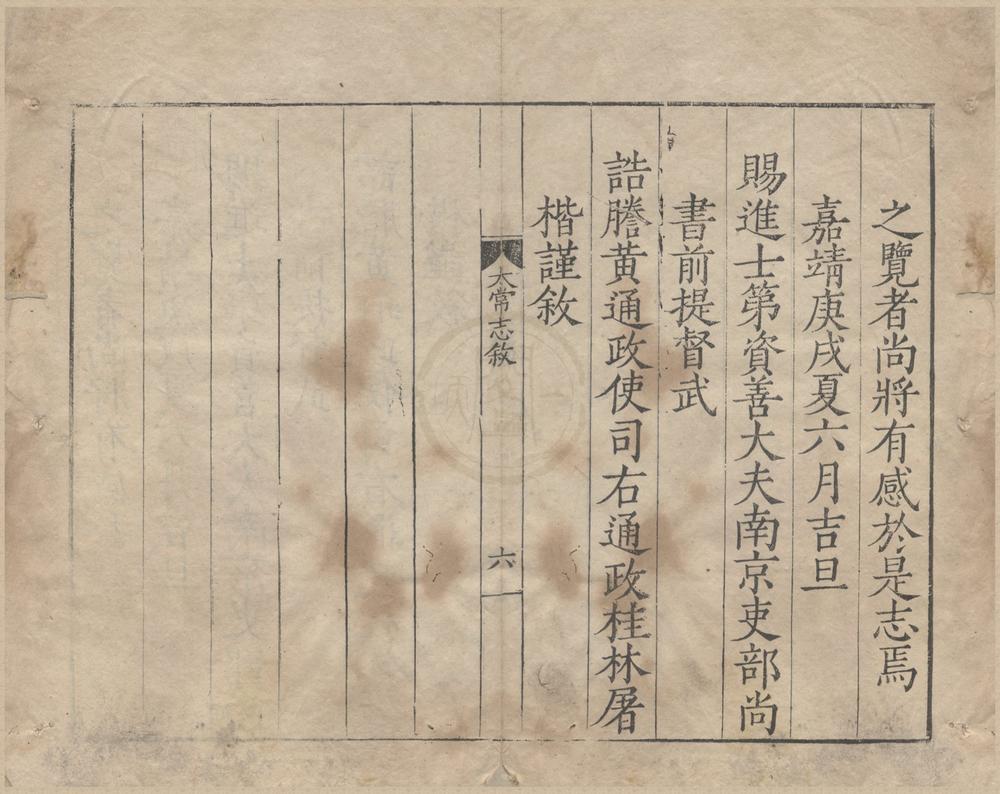 之覽者尚將有感於是志焉
嘉靖庚戌夏六月吉旦
賜進士第資善大夫南京吏部尚
書前提督武
誥謄黃通政使司右通政桂林屠
楷謹敘
太常志敘
六